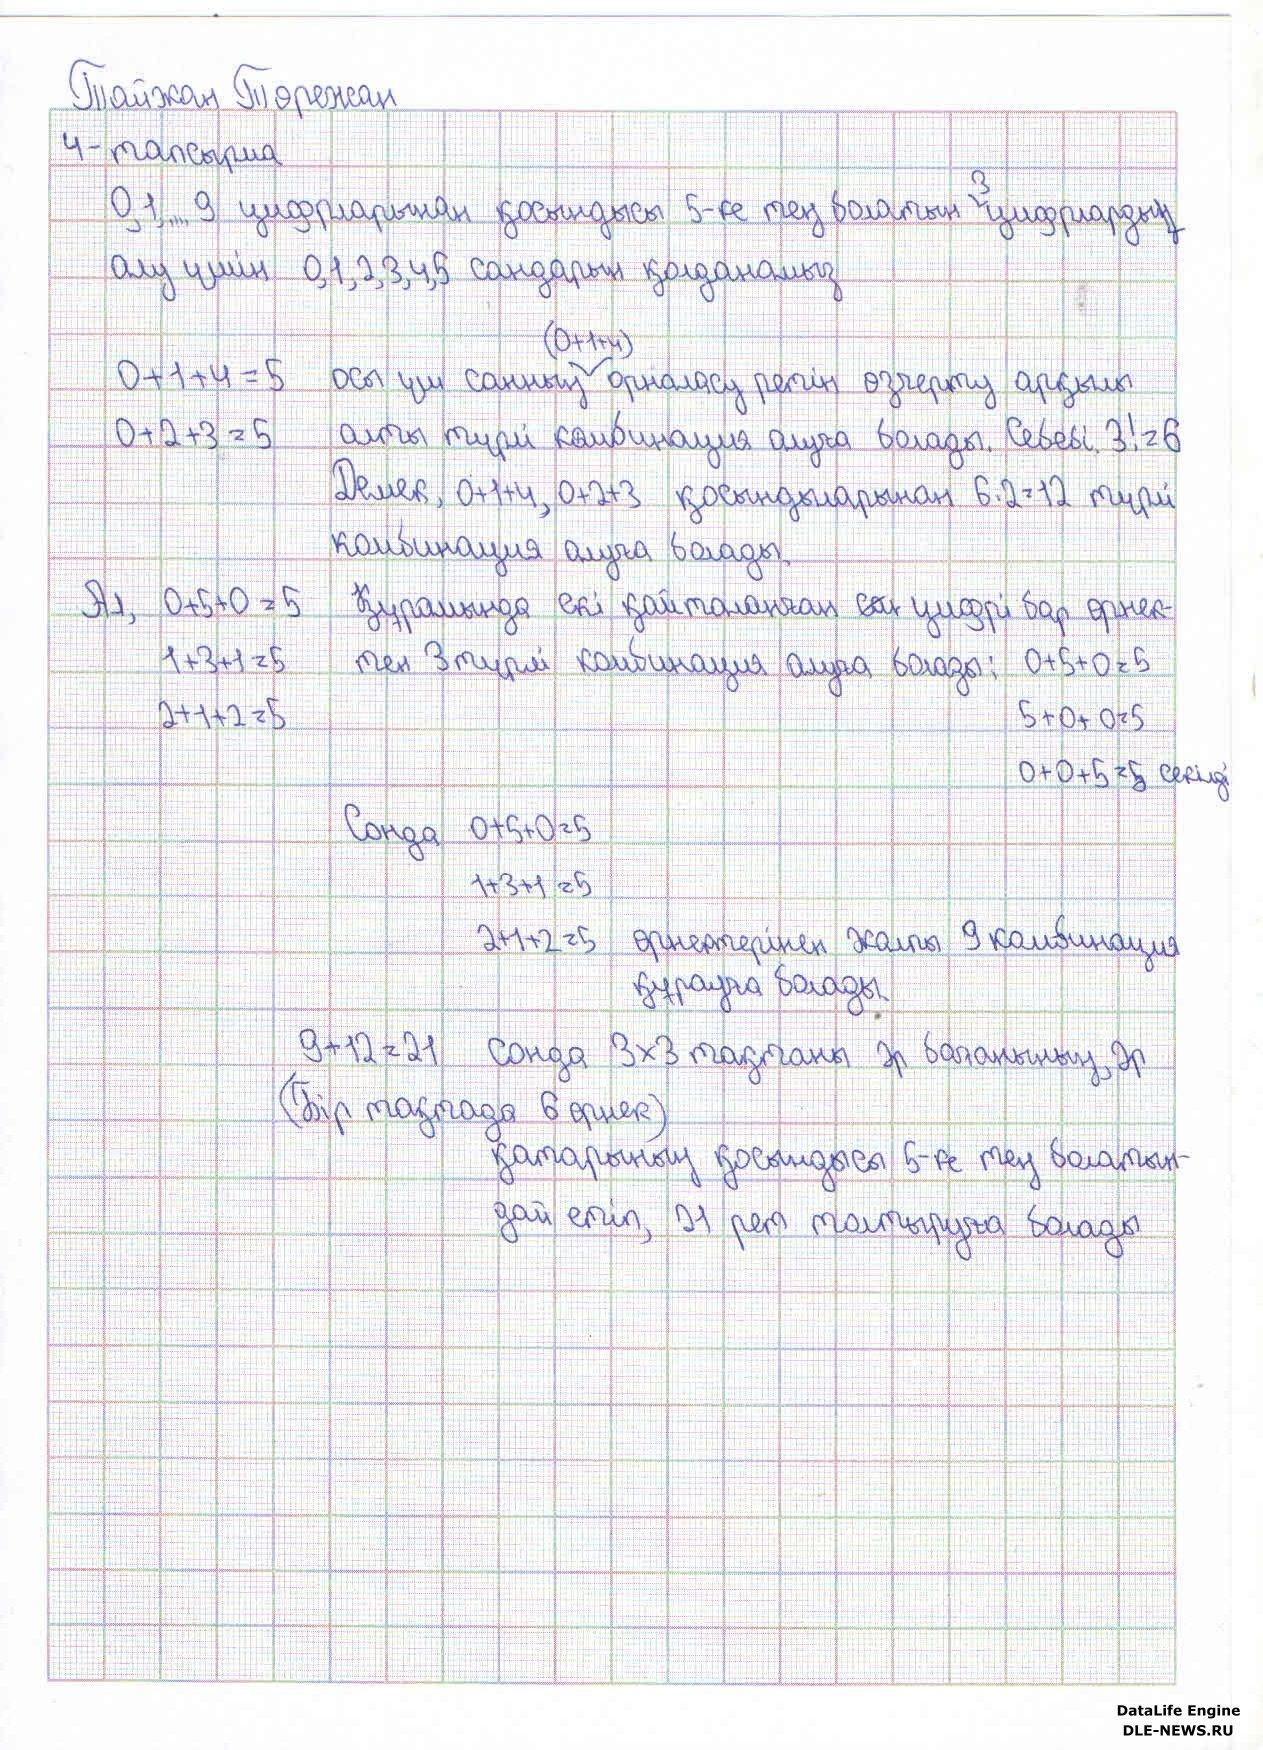 Тайжан Төрежан
4-тапсырма
0,1,...,9 цифрларынан қосындысы 5-ке тең болатын 3 цифрлардың
алу үшін 0,1,2,3,4,5 сандарын қолданамыз
(0+1+4)
0+1+4=5 осы үш санның орналасу ретін өзгерту арқылы
0+2+3=5 алты түрлі комбинация алуға болады. Себебі, 3!=6
Демек, 0+1+4, 0+2+3 қосындыларынан 6·2=12 түрлі
комбинация алуға болады.
Ал, 0+5+0=5 Құрамында екі қайталанған сан цифрі бар өрнек-
1+3+1=5 тен 3 түрлі комбинация алуға болады: 0+5+0=5
2+1+2=5 5+0+0=5
0+0+5=5 секілді
Сонда 0+5+0=5
1+3+1=5
2+1+2=5 өрнектерінен жалпы 9 комбинация
құрауға болады.
9+12=21 Сонда 3×3 тақтаны әр бағанының, әр
(Бір тақтада 6 өрнек)
қатарының қосындысы 5-ке тең болатын-
дай етіп, 21 рет толтыруға болады
DataLife Engine
DLE-NEWS.RU